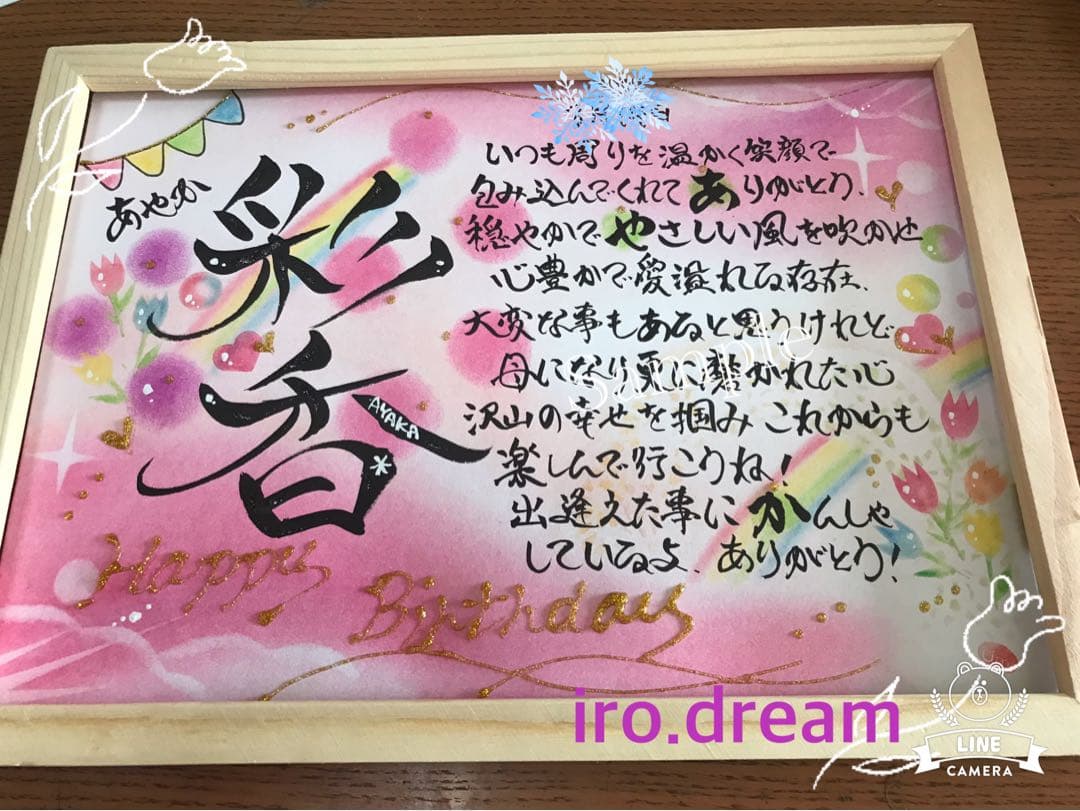 あやか
彩香
AYAKA
いつも周りを温かく笑顔で
包み込んでくれてありがとう.
穏やかでやさしい風を吹かせ
心豊かで愛溢れる存在.
大変な事もあると思うけれど
母になり更に磨かれた心
沢山の幸せを掴みこれからも
楽しんで行こうね!
出逢えた事にかんしゃ
しているよ. ありがとう!
Happy Birthday
Sample
iro.dream
LINE
CAMERA